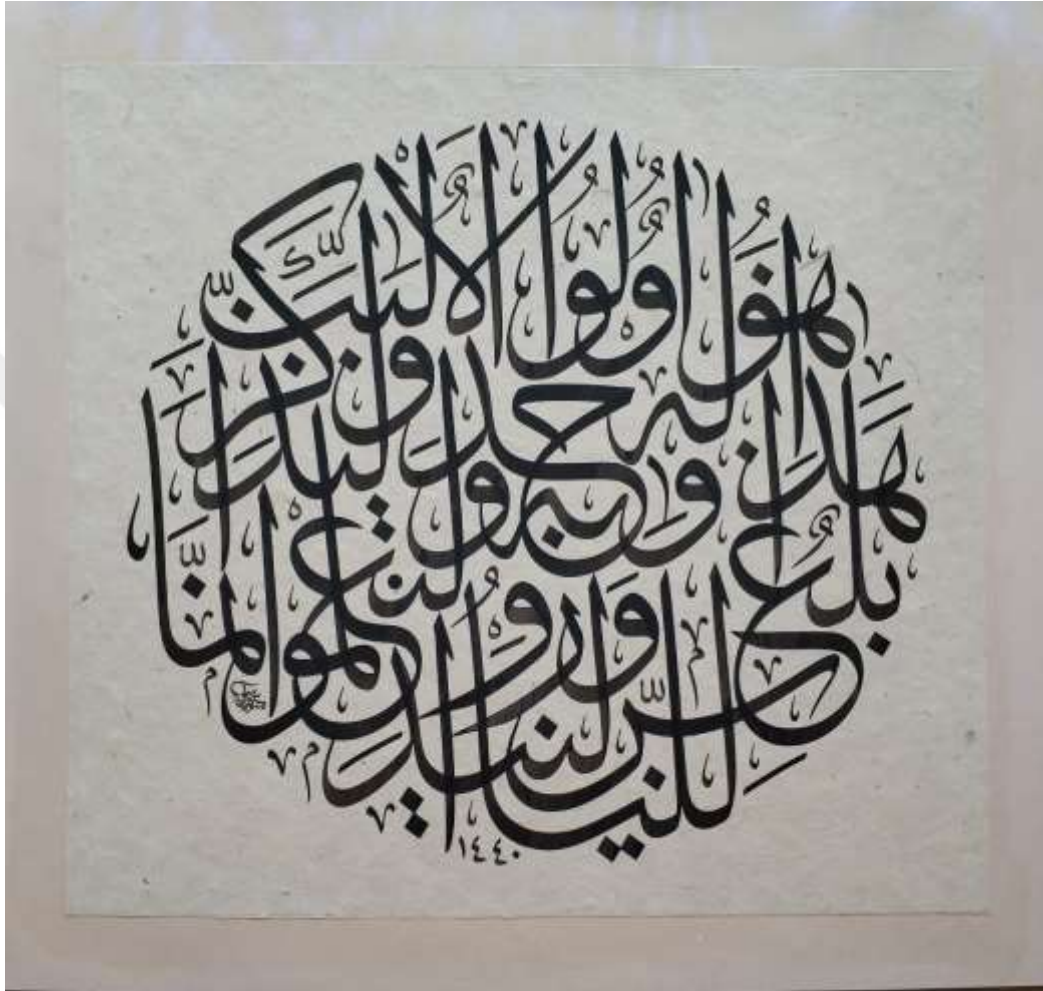 هَٰذَا بَلَاغٌ لِلنَّاسِ وَلِيُنْذَرُوا بِهِ وَلِيَعْلَمُوا أَنَّمَا هُوَ إِلَٰهٌ وَاحِدٌ وَلِيَذَّكَّرَ أُولُوا الْأَلْبَابِ
١٤٤٠